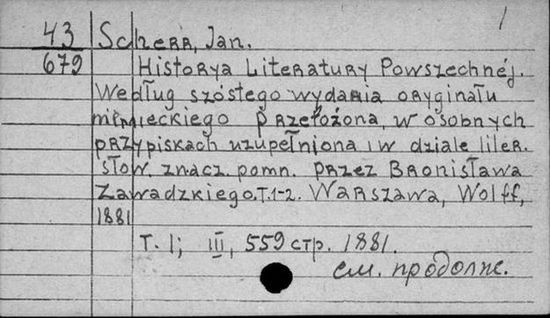 1
43 Scherr, Jan.
679 Historya Literatury Powszechnéj.
Według szóstego wydania oryginału
niemieckiego przełożona, w osobnych
przypiskach uzupełniona i w dziale liler.
słow. znacz. pomn. przez Bronisława
Zawadzkiego. T. 1-2. Warszawa, Wolff,
1881
T. I; III, 559 стр. 1881.
см. продолж.